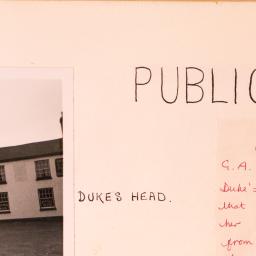 PUBLIC
DUKE'S HEAD.
G. A.
Duke's
that
her
from